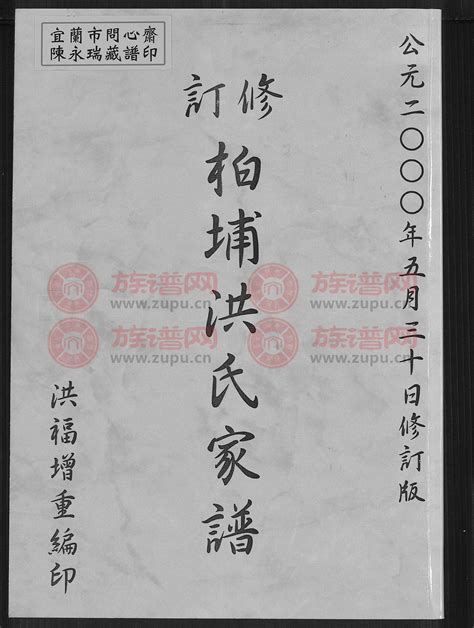 宜蘭市問心齋
陳永瑞藏譜印
公元二〇〇〇年五月三十日修訂版
修訂
柏埔洪氏家譜
洪福增重編印
族谱网 族谱网
www.zupu.cn www.zupu.cn
族谱网 族谱网
www.zupu.cn www.zupu.cn